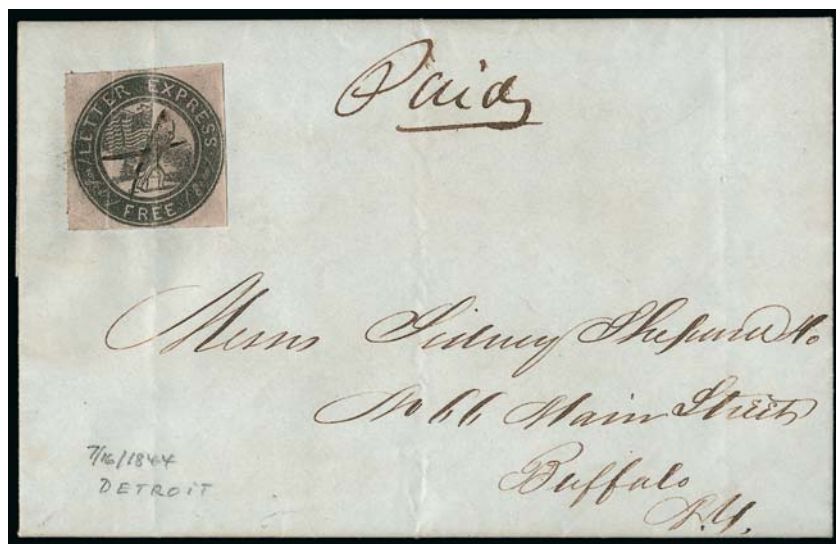 LETTER EXPRESS
FREE
Paid
Messrs Sidney Shepard & Co
No 66 Main Street
Buffalo
N.Y.
7/16/1844
DETROIT